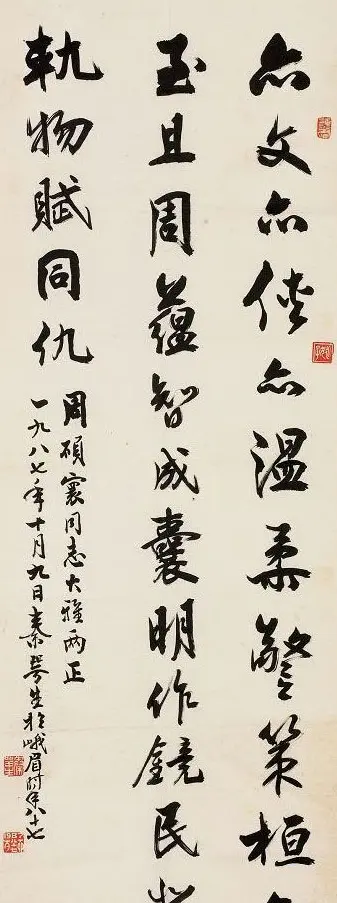 亦文亦俠亦温柔警策桓
至且周蘊智成囊明作鏡民
軌物賦同仇
周碩寰同志大雅两正
一九八七年十月九日秦萼生於峨眉时年八十七